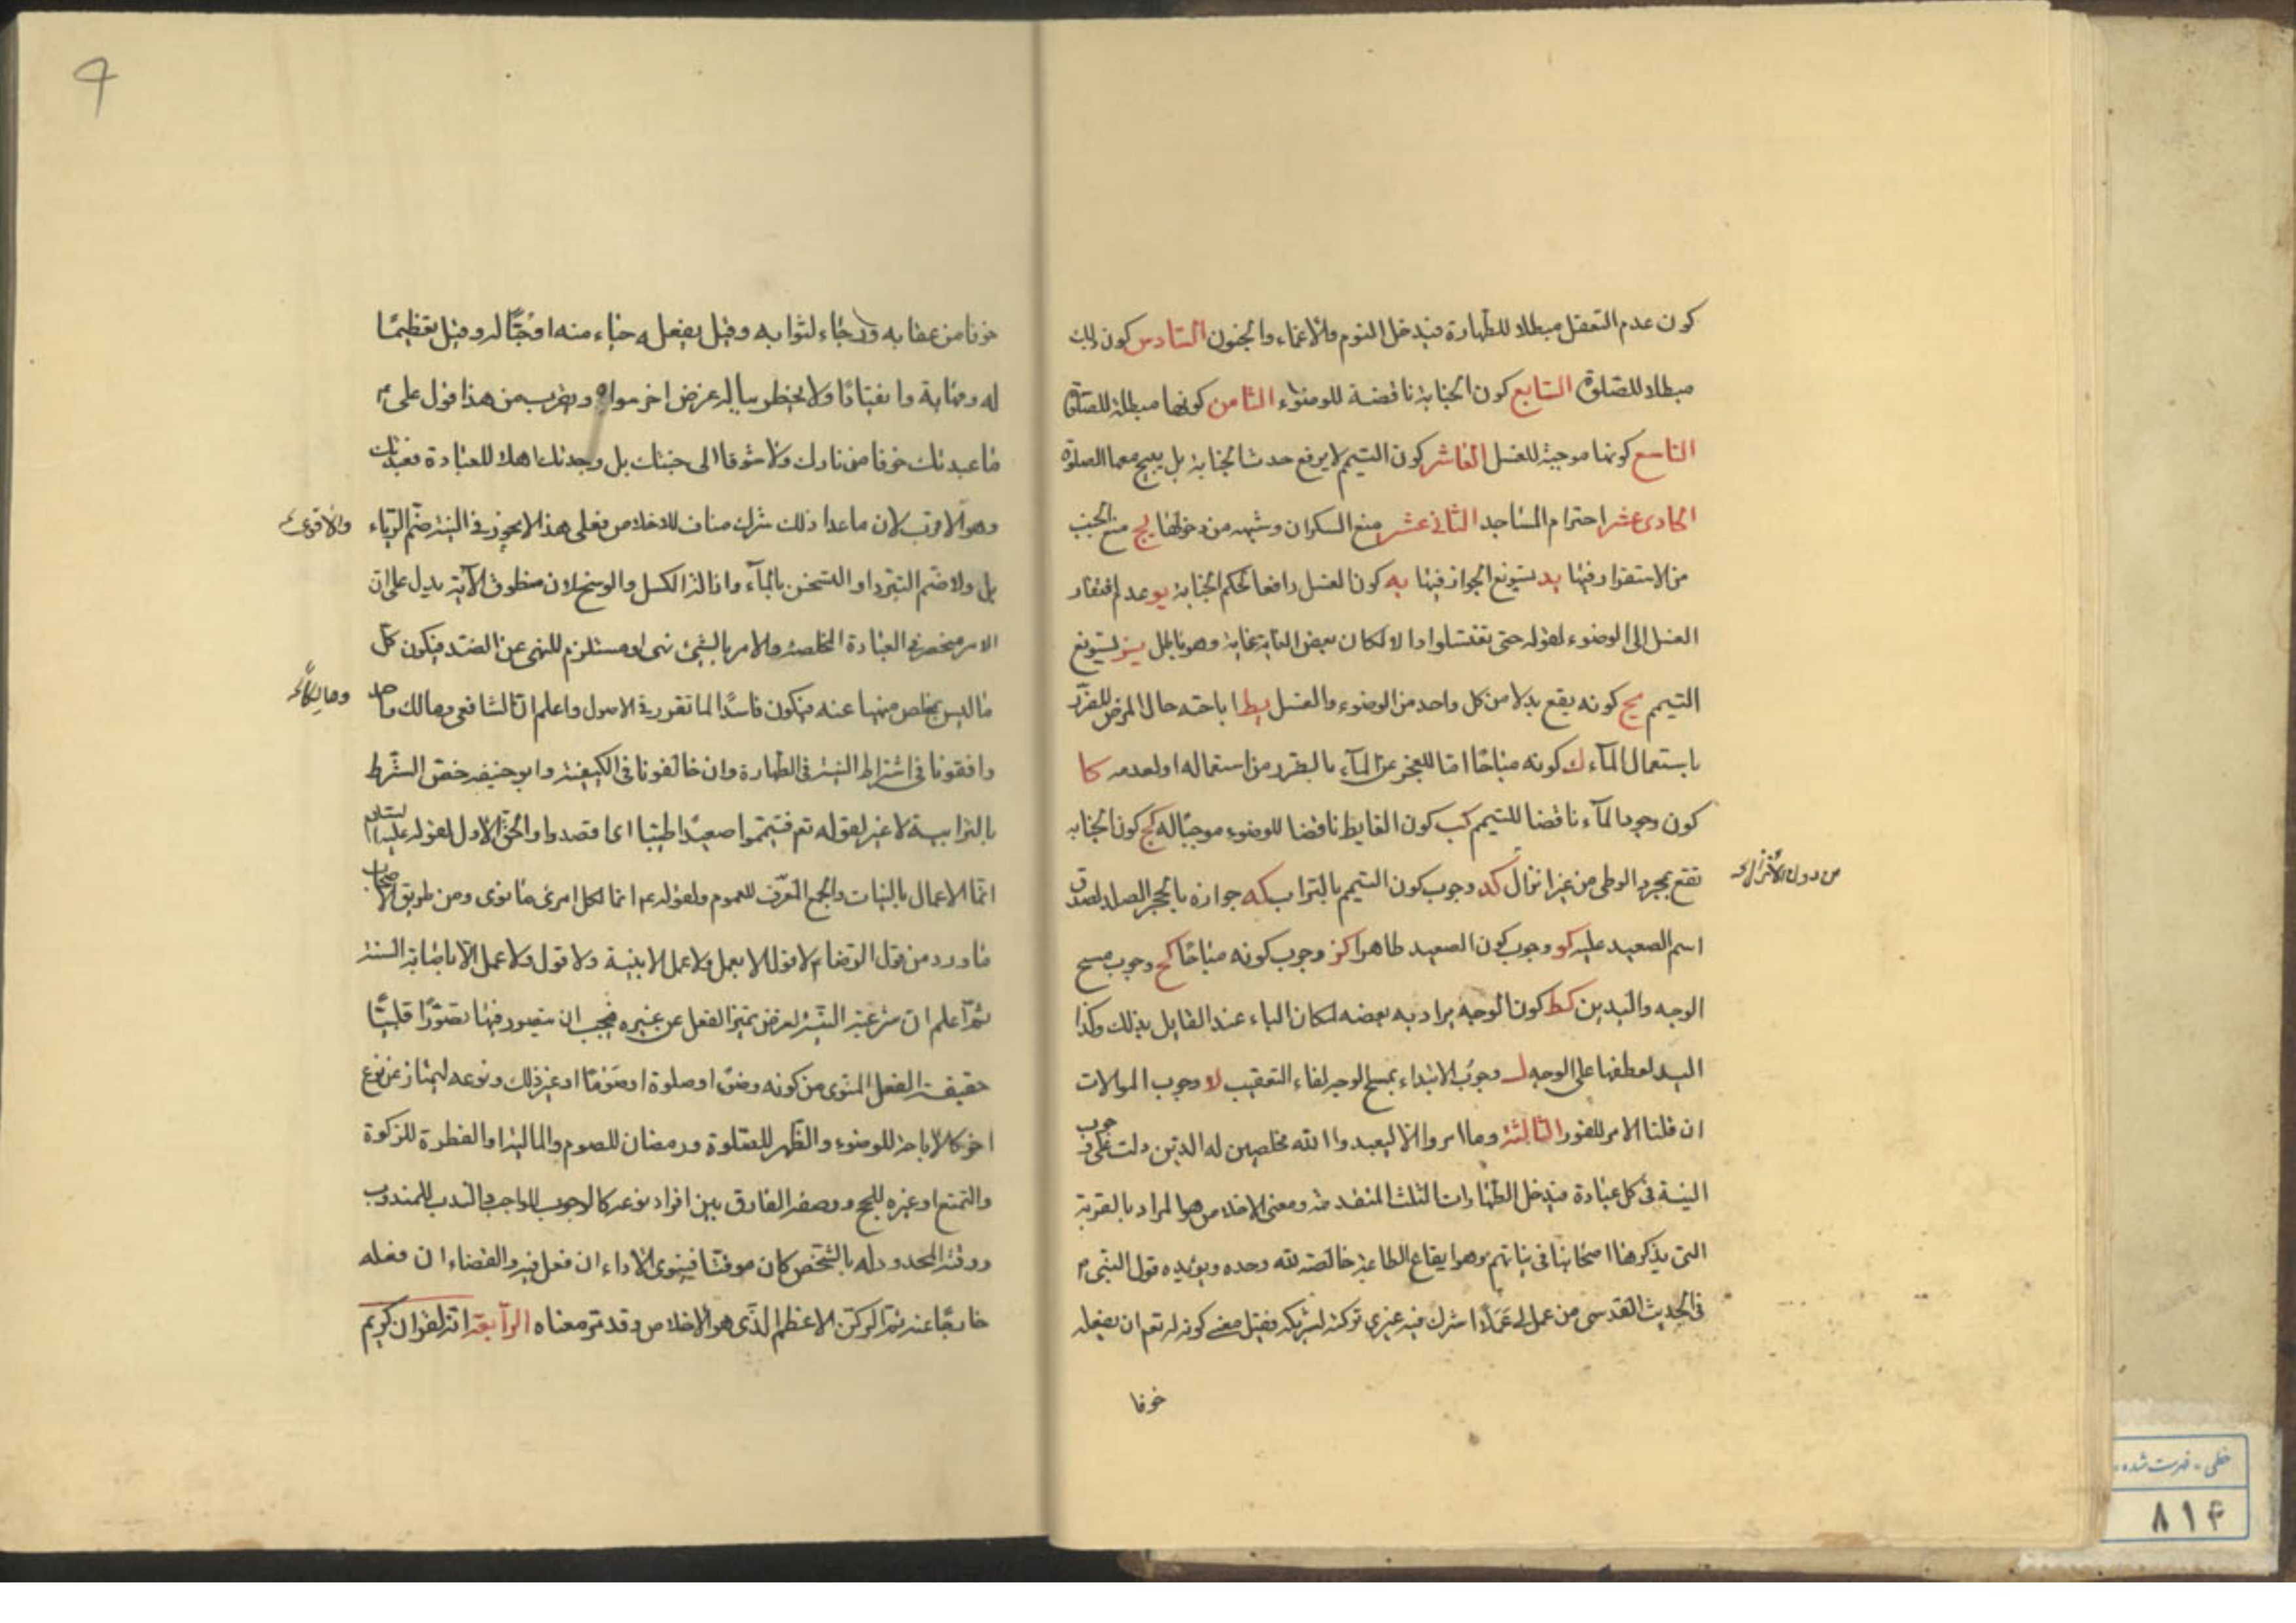 كون عدم التعقل مبطلا للطهارة فيدخل النوم والاغماء والجنون السادس كون ذلك
مبطلا للصلوة السابع كون الجنابة ناقضة للوضوء الثامن كونها مبطلة للصلوة
التاسع كونها موجبة للغسل العاشر كون التيمم لا يرفع حدث الجنابة بل يبيح معها الصلوة
الحادى عشر احترام المساجد الثانى عشر منع السكران وشبهه من دخولها يج منع الجنب
من الاستقرار فيها يد تسويغ الجواز فيها يه كون الغسل رافعا لحكم الجنابة يو عدم افتقار
الغسل الى الوضوء لقوله حتى تغتسلوا والا لكان بعض الغاية غاية وهو باطل يز تسويغ
التيمم يح كونه يقع بدلا من كل واحد من الوضوء والغسل يط اباحته حال المرض للتضرر
باستعمال المآء ك كونه مباحا اما للعجز عن المآء بالتضرر من استعماله او لعدمه كا
كون وجود المآء ناقضا للتيمم كب كون الغايط ناقضا للوضوء موجبا له كج كون الجنابه
تقع بمجرد الوطى من غير انزال كد وجوب كون التيمم بالتراب كه جوازه بالحجر الصلد لصدق
من دون الانزال
اسم الصعيد عليه كو وجوب كون الصعيد طاهرا كز وجوب كونه مباحا كح وجوب مسح
الوجه واليدين كط كون الوجه يراد به بعضه لمكان الباء عند القايل بذلك وكذا
اليد لعطفها على الوجه ل وجوب الابتداء بمسح الوجه لفاء التعقيب لا وجوب الموالات
ان قلنا الامر للفور الثالثة وما امروا الا ليعبدوا الله مخلصين له الدين دلت على وجوب
النية فى كل عبادة فيدخل الطهارات الثلث المتقدمة ومعنى الاخلاص هو المراد بالقربة
التى يذكرها اصحابنا فى نياتهم وهو ايقاع الطاعة خالصة لله وحده ويؤيده قول النبى م
فى الحديث القدسى من عمل لى عملا اشرك فيه غيرى تركته لشريكه فقيل معنى كونه له تعم ان يفعله
خوفا
خوفا من عقابه ورجاء لثوابه وقيل يفعله حياء منه او حبا له وقيل تعظيما
له ومهابة وانقيادا ولا يخطر بباله غرض اخر سواه ويقرب من هذا قول على م
ما عبدتك خوفا من نارك ولا شوقا الى جنتك بل وجدتك اهلا للعبادة فعبدتك
وهو الاقرب لان ما عدا ذلك شرك مناف للاخلاص فعلى هذا لا يجوز فى النية ضم الرياء
والاقوى
بل ولا ضم التبرد او التسخن بالمآء وازالة الكسل والوسخ لان منطوق الآية يدل على ان
الامر منحصر فى العبادة المخلصة والامر بالشيئ نهى او مستلزم للنهى عن الضد فيكون كل
ما ليس بمخلص منهيا عنه فيكون فاسدا لما تقرر فى الاصول واعلم ان الشافعى ومالك واحمد
ومالكا
وافقونا فى اشتراط النية فى الطهارة وان خالفونا فى الكيفية وابو حنيفه خص الشرط
بالترابية لا غير لقوله تعم فتيمموا صعيدا طيبا اى اقصدوا والحق الاول لقوله عليه السلام
انما الاعمال بالنيات والجمع المعرف للعموم ولقوله عم انما لكل امرئ ما نوى ومن طريق الاصحاب
ما ورد من قول الرضا م لا قول الا بعمل ولا عمل الا بنية ولا قول ولا عمل الا باصابة السنة
ثم اعلم ان شرعية النية لغرض تميز الفعل عن غيره فيجب ان يتصور فيها تصورا قلبيا
حقيقة الفعل المنوى من كونه وضوء او صلوة او صوما او غير ذلك ونوعه ليمتاز عن نوع
اخر كالاباحة للوضوء والظهر للصلوة ورمضان للصوم والمالية او الفطرة للزكوة
والتمتع او غيره للحج ووصفه الفارق بين افراد نوعه كالوجوب للواجب والندب للمندوب
ووقته المحدود له بالشخص كان موقتا فينوى الاداء ان فعل فيه والقضاء ان فعله
خارجا عنه ثم الركن الاعظم الذى هو الاخلاص وقد مر معناه الرآبعة انه لقران كريم
خطى - فهرست شده
۸۱۴